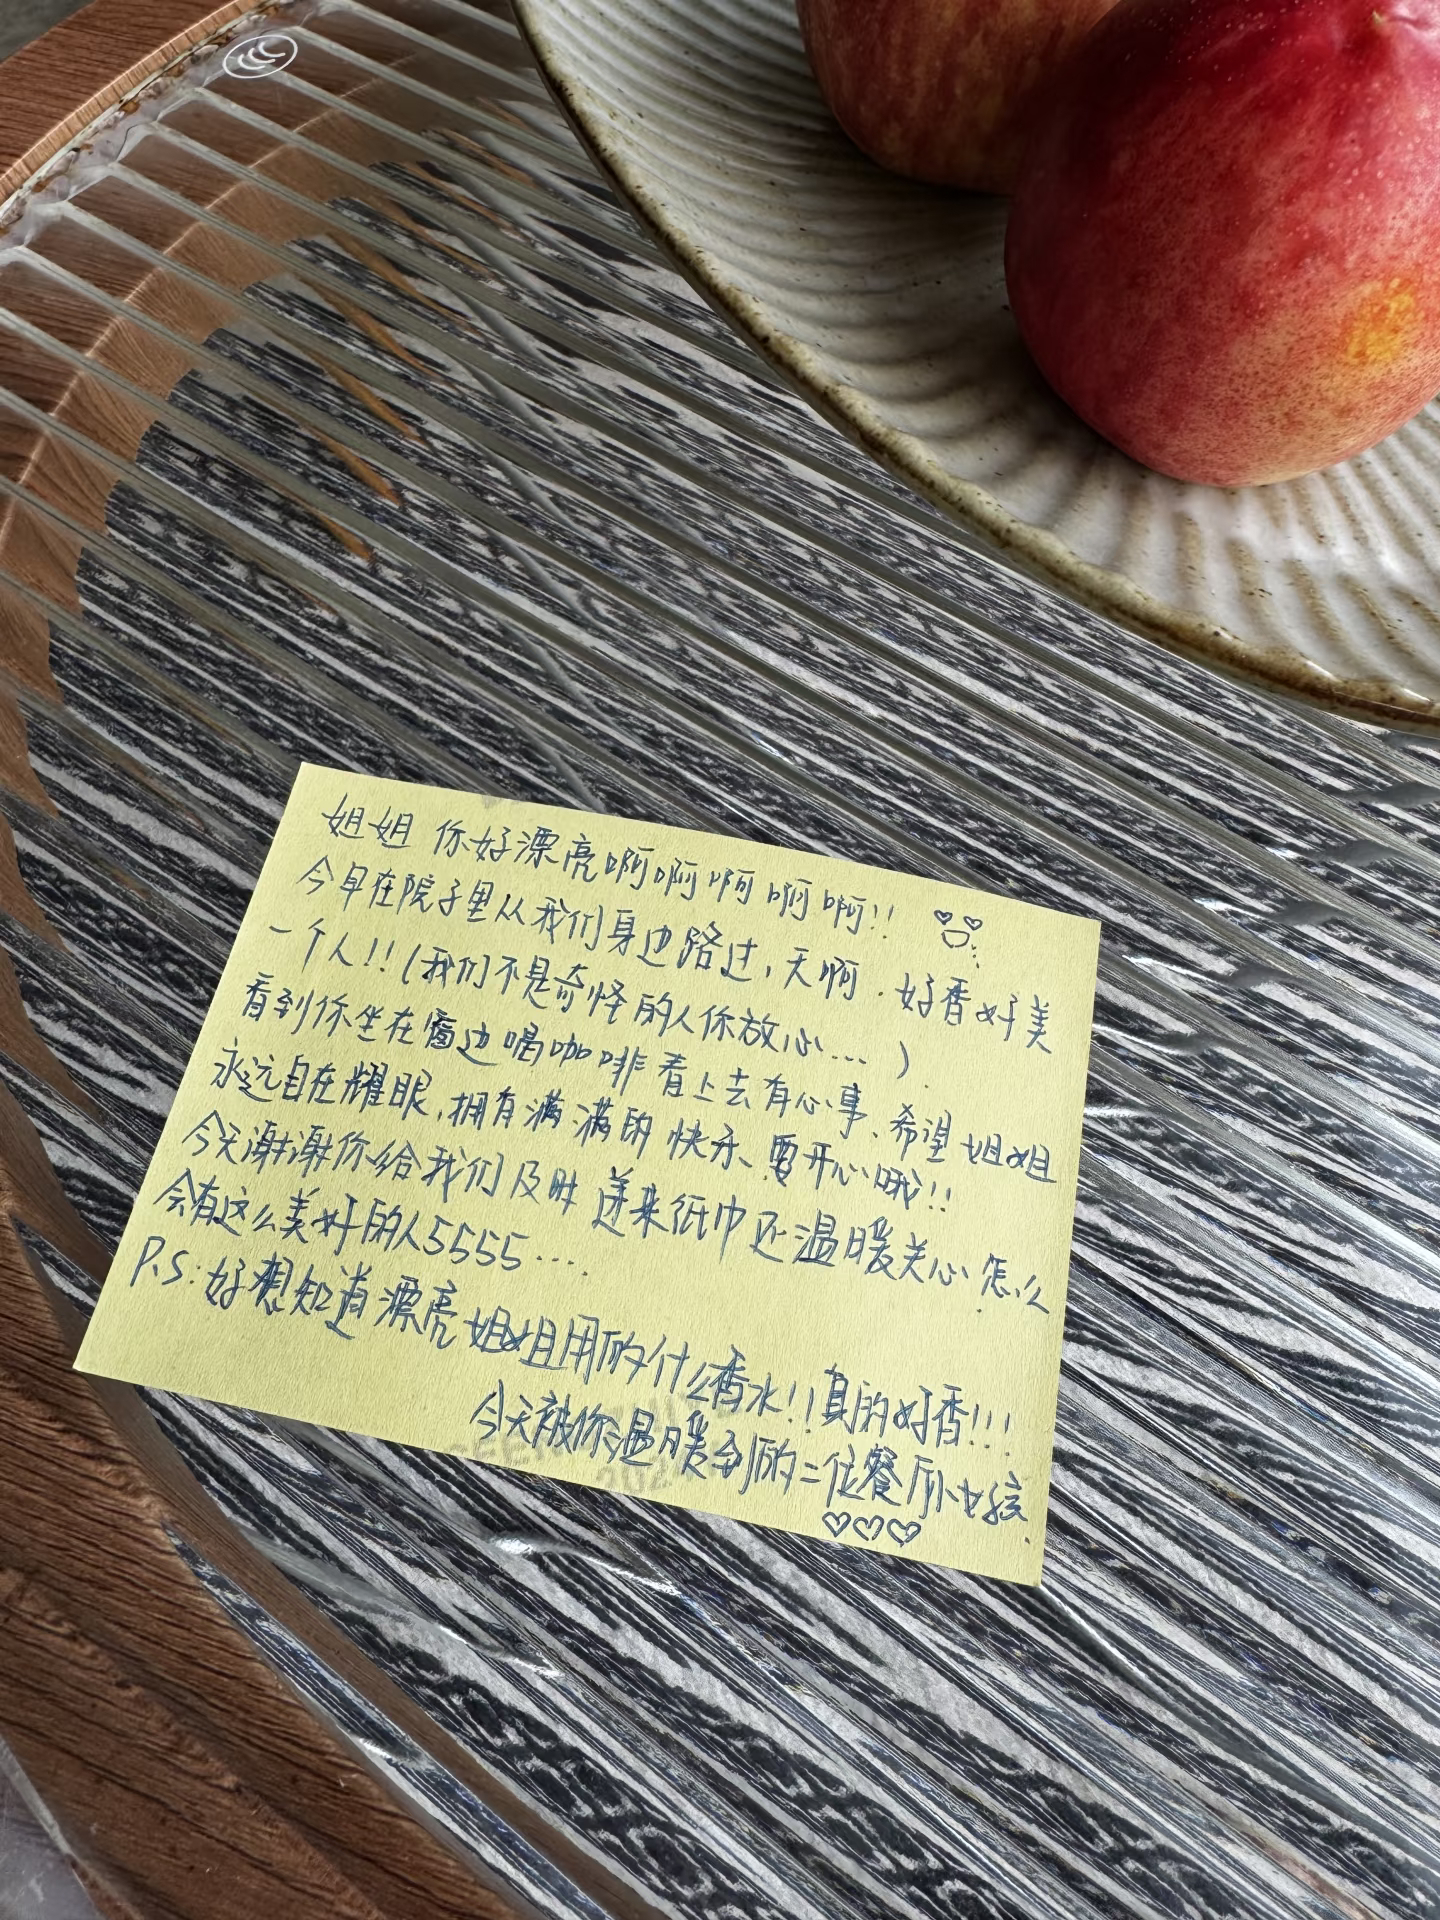 姐姐 你好漂亮啊啊啊啊啊!!
今早在院子里从我们身边路过,天啊.好香好美
一个人!!(我们不是奇怪的人你放心...)
看到你坐在窗边喝咖啡看上去有心事、希望姐姐
永远自在耀眼,拥有满满的快乐、要开心哦!!
今天谢谢你给我们及时递来纸巾还温暖关心.怎么
会有这么美好的人5555....
P.S:好想知道漂亮姐姐用的什么香水!!真的好香!!!
今天被你温暖到的二位餐厅小女孩.